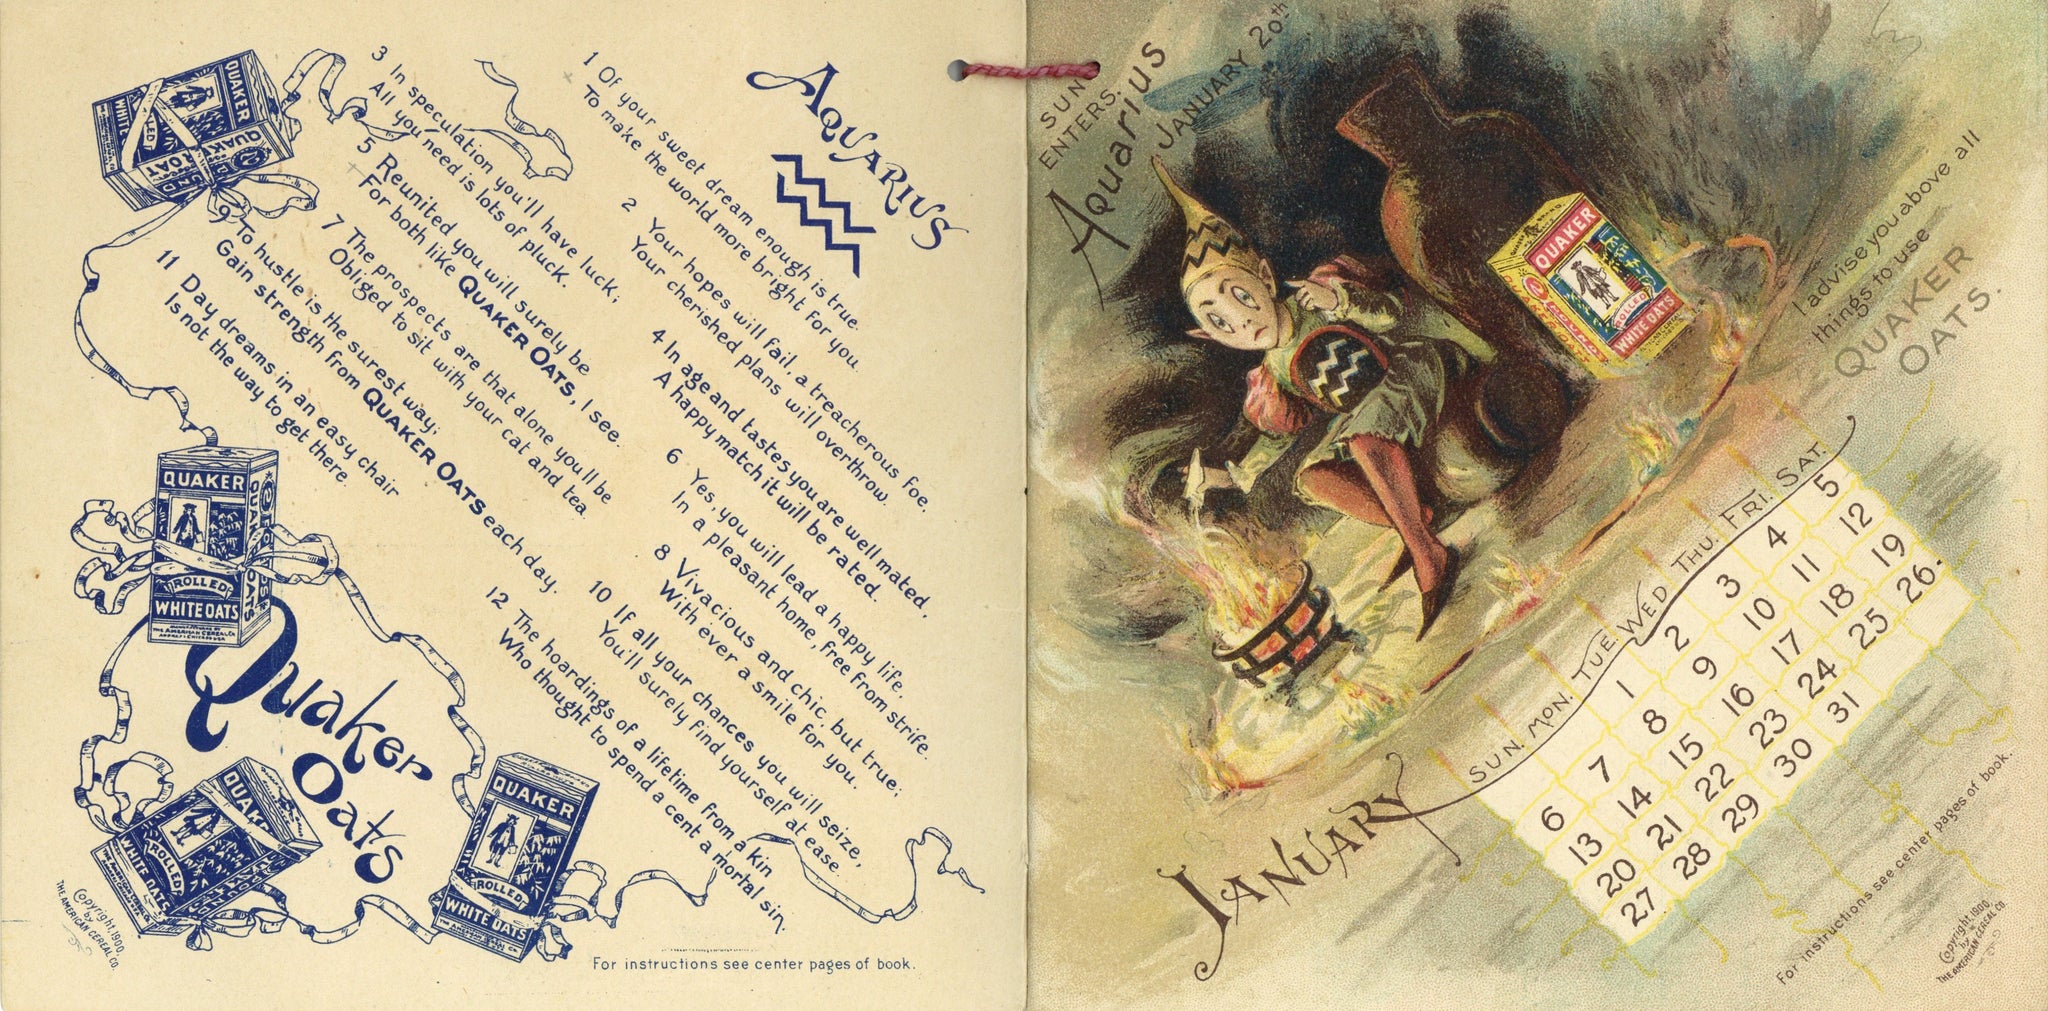 AQUARIUS
1 Of your sweet dream enough is true
To make the world more bright for you.
2 Your hopes will fail, a treacherous foe,
Your cherished plans will overthrow.
3 In speculation you'll have luck;
All you need is lots of pluck.
4 In age and tastes you are well mated,
A happy match it will be rated.
5 Reunited you will surely be
For both like QUAKER OATS, I see.
6 Yes, you will lead a happy life,
In a pleasant home, free from strife.
7 The prospects are that alone you'll be
Obliged to sit with your cat and tea.
8 Vivacious and chic, but true;
With ever a smile for you.
9 To hustle is the surest way;
Gain strength from QUAKER OATS each day.
10 If all your chances you will seize,
You'll surely find yourself at ease.
11 Day dreams in an easy chair
Is not the way to get there.
12 The hoardings of a lifetime from a kin
Who thought to spend a cent a mortal sin.
QUAKER
ROLLED
WHITE OATS
QUAKER
ROLLED
WHITE OATS
THE AMERICAN CEREAL CO.
QUAKER OATS
Quaker
Oats
QUAKER
ROLLED
WHITE OATS
QUAKER
ROLLED
WHITE OATS
Copyright 1900,
by
THE AMERICAN CEREAL CO.
For instructions see center pages of book.
SUN
ENTERS.
Aquarius
JANUARY 20th
QUAKER
ROLLED
WHITE OATS
2 POUNDS
I advise you above all
things to use
QUAKER
OATS.
JANUARY
SUN. MON. TUE. WED. THU. FRI. SAT.
1 2 3 4 5
6 7 8 9 10 11 12
13 14 15 16 17 18 19
20 21 22 23 24 25 26.
27 28 29 30 31
For instructions see center pages of book.
Copyright, 1900,
by
THE AMERICAN CEREAL CO.